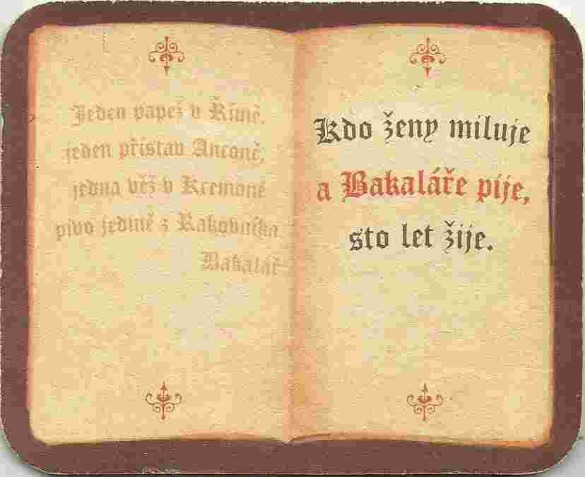 Jeden papež v Římě,
jeden přístav Anconě,
jedna věž v Kremoně
pivo jedině z Rakovníka
Bakalář
Kdo ženy miluje
a Bakaláře pije,
sto let žije.